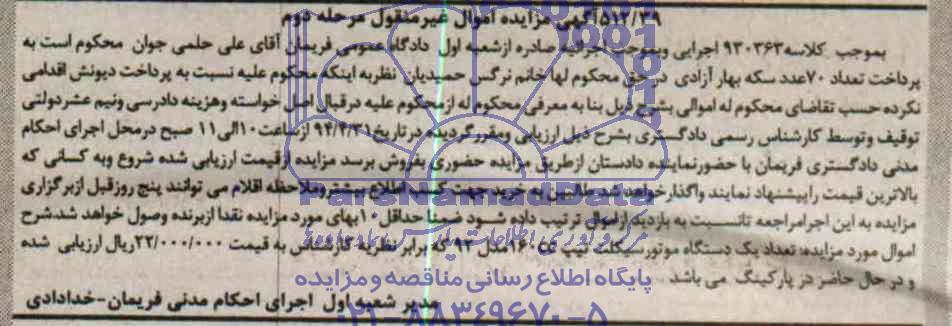 ۵۱۲/۳۹آگهی مزایده اموال غیرمنقول مرحله دوم
بموجب کلاسه۹۳۰۳۶۳ اجرایی وبموجب اجرائیه صادره ازشعبه اول دادگاه عمومی فریمان آقای علی حلمی جوان محکوم است به
پرداخت تعداد ۷۰عدد سکه بهار آزادی در حق محکوم لها خانم نرگس حمیدیان نظربه اینکه محکوم علیه نسبت به پرداخت دیونش اقدامی
نکرده حسب تقاضای محکوم له اموالی بشرح ذیل بنا به معرفی محکوم له ازمحکوم علیه درقبال اصل خواسته وهزینه دادرسی ونیم عشردولتی
توقیف وتوسط کارشناس رسمی دادگستری بشرح ذیل ارزیابی ومقررگردیده درتاریخ۹۴/۴/۳۱ ازساعت۱۰الی۱۱ صبح درمحل اجرای احکام
مدنی دادگستری فریمان با حضورنماینده دادستان ازطریق مزایده حضوری بفروش برسد مزایده ازقیمت ارزیابی شده شروع وبه کسانی که
بالاترین قیمت راپیشنهاد نمایند واگذارخواهد شد طالبین به خرید جهت کسب اطلاع بیشتروملاحظه اقلام می توانند پنج روزقبل ازبرگزاری
مزایده به این اجرامراجعه تانسبت به بازدید ازاموال ترتیب داده شود ضمنا حداقل۱۰بهای مورد مزایده نقدا ازبرنده وصول خواهد شد.شرح
اموال مورد مزایده: تعداد یک دستگاه موتورسیکلت تیپ مدل ۹۲ که برابر نظریه کارشناس به قیمت ۲۲/۰۰۰/۰۰۰ریال ارزیابی شده
و در حال حاضر در پارکینگ می باشد
مدیر شعبه اول اجرای احکام مدنی فریمان-خدادادی
ParsNamadData
پایگاه اطلاع رسانی مناقصه و مزایده
۰۲۱-۸۸۳۴۹۶۷۰-۵